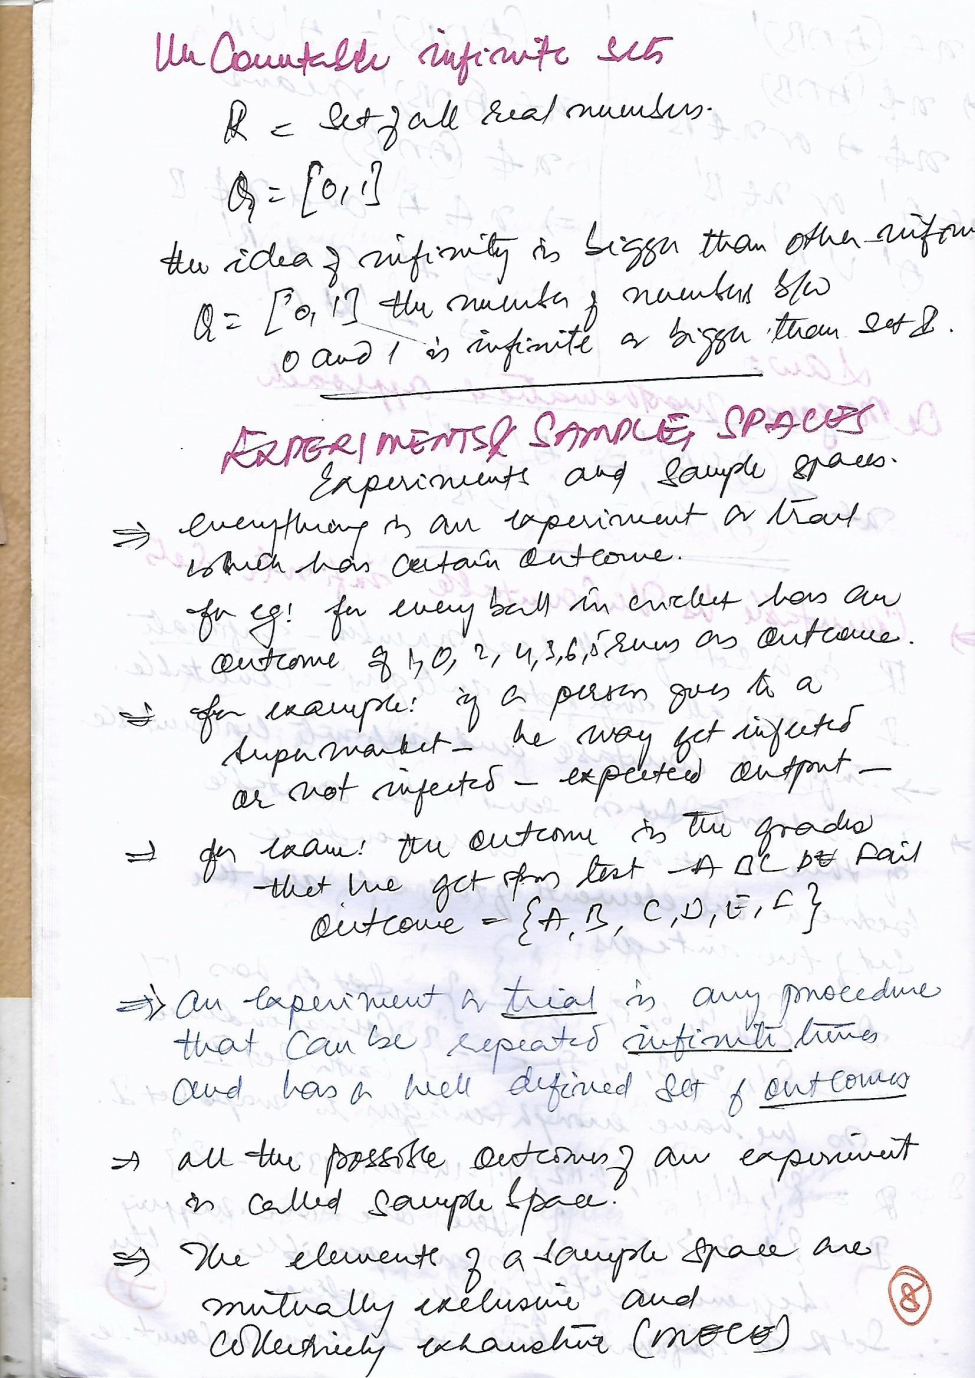 UnCountable infinite sets
R = Set of all real numbers.
Q = [0, 1]
the idea of infinity is bigger than other infin
Q = [0, 1] the number of numbers b/w
0 and 1 is infinite or bigger than set
EXPERIMENTS & SAMPLE SPACES
Experiments and Sample spaces.
⇒ everything is an experiment or trail
which has certain outcome.
for eg! for every ball in cricket has an
outcome of 1, 0, 2, 4, 3, 6, 5 runs as outcome.
⇒ for example: if a person goes to a
Supermarket - he may get infected
or not infected - expected output -
⇒ for exam: the outcome is the grades
that we get from test - A B C D E Fail
outcome = {A, B, C, D, E, F}
⇒ an experiment or trial is any procedure
that can be repeated infinite times
and has a well defined set of outcomes
→ all the possible outcomes of an experiment
is called Sample Space.
⇒ The elements of a sample space are
mutually exclusive and
collectively exhaustive (MECE)
8